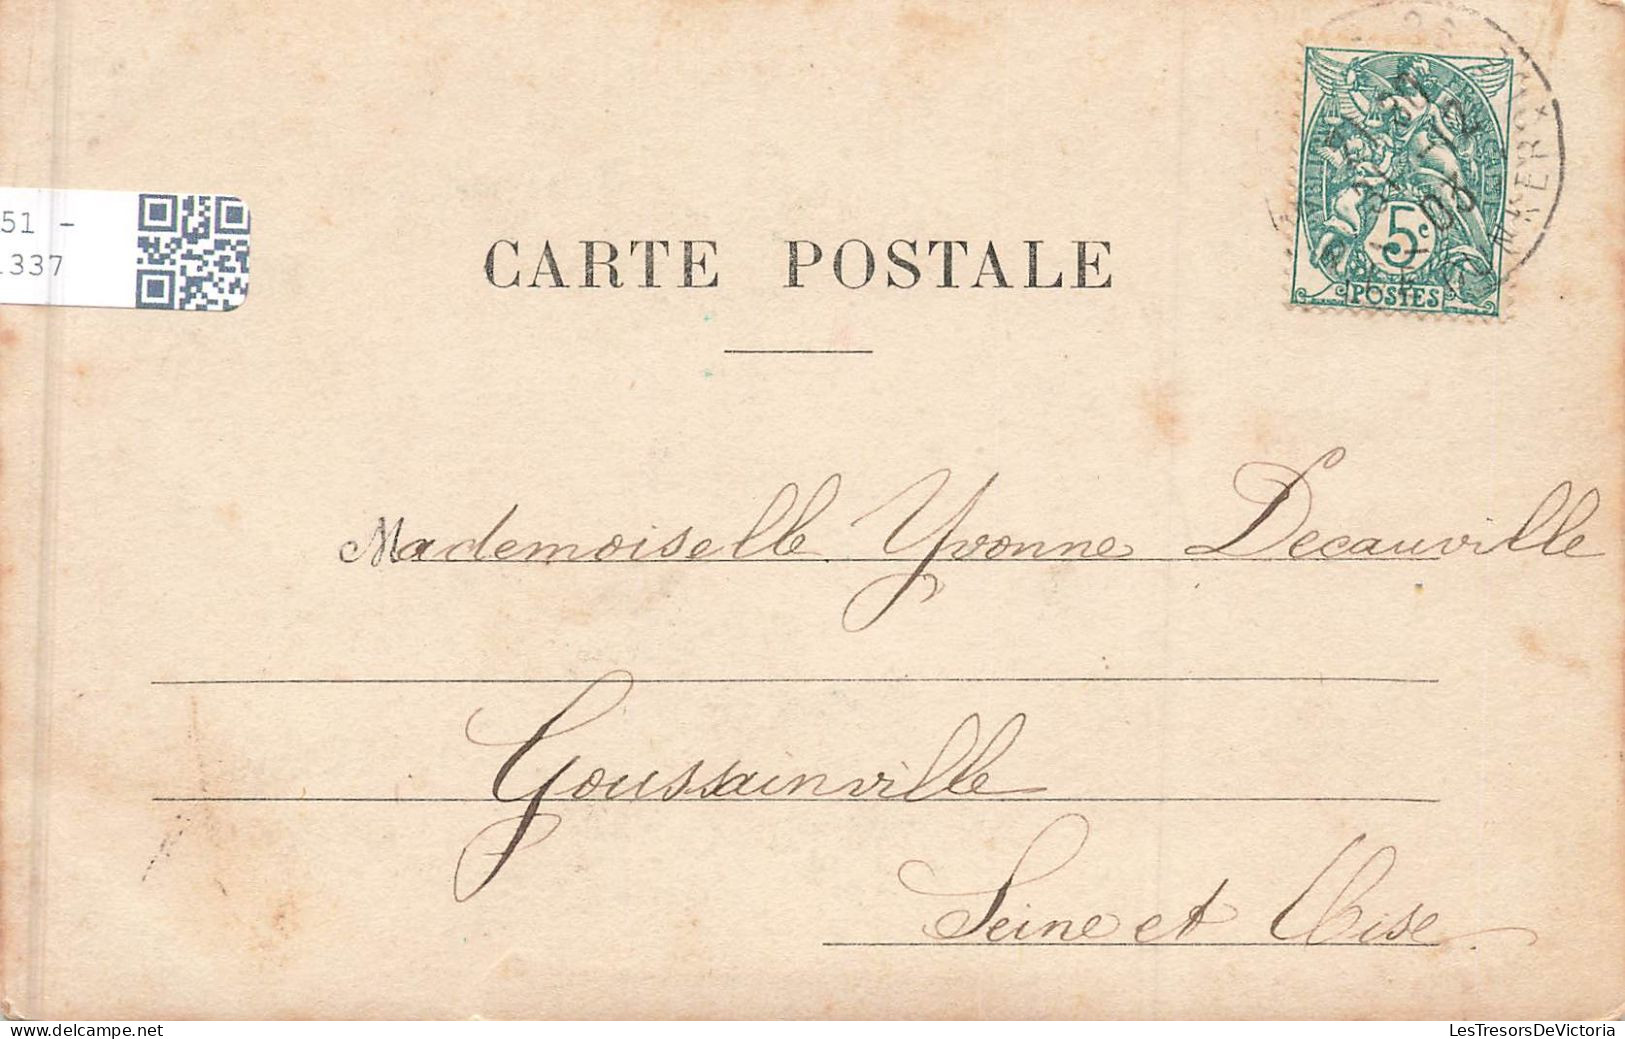 51 -
1337
CARTE POSTALE
5c
POSTES
Mademoiselle Yvonne Decauville
Goussainville
Seine et Oise.
LesTresorsDeVictoria
delcampe.net